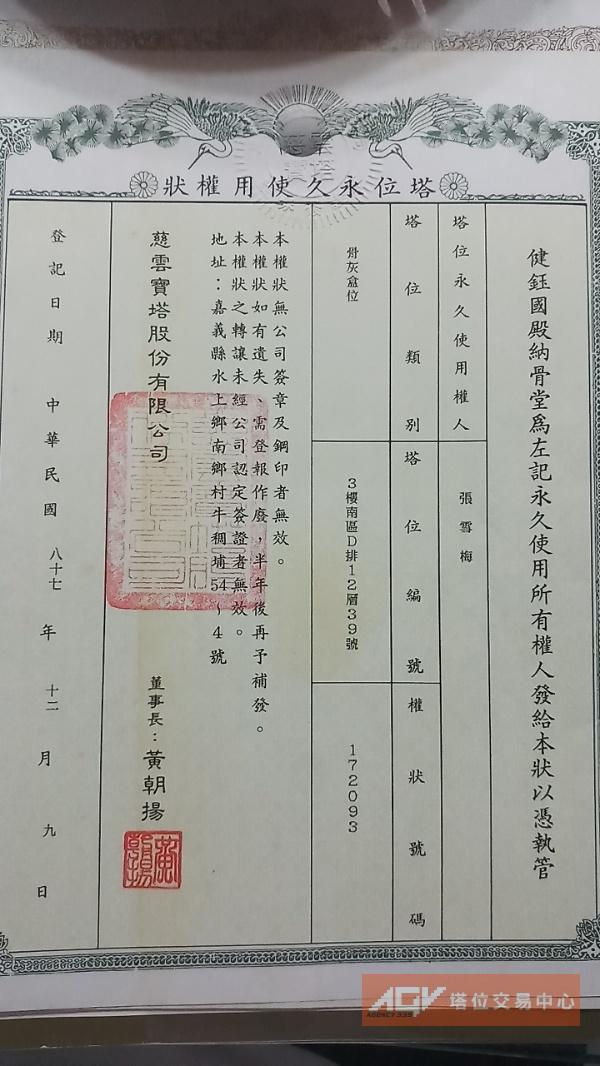 塔位永久使用權狀
健鈺國殿納骨堂爲左記永久使用所有權人發給本狀以憑執管
塔位永久使用權人
張雪梅
塔位類別
塔位編號
權狀號碼
骨灰盒位
3樓南區D排12層39號
172093
本權狀無公司簽章及鋼印者無效。
本權狀如有遺失、需登報作廢，半年後再予補發。
本權狀之轉讓未經公司認定簽證者無效。
地址：嘉義縣水上鄉南鄉村牛稠埔54~4號
慈雲寶塔股份有限公司
董事長：黃朝揚
登記日期 中華民國 八十七 年 十二 月 九 日
AGV 塔位交易中心
AGENCY.999